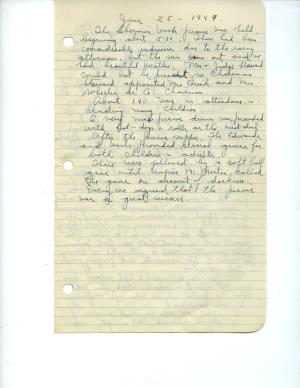 June 25 - 1949.
The Sherman Woods picnic was held
beginning about 5:30. There had been
considerable indecision due to the rainy
afternoon, but the sun came out and we
had beautiful weather. Mrs.
could not be present so Chairman
appointed Mrs. and Mrs.
Wheeler as Co Chairmen.
About 140 were in attendance, in-
cluding many children.
A very nice picnic dinner was provided
with hot-dogs & rolls as the
After the picnic supper, the Edwards
and provided several games for
both children & adults.
This was followed by a soft ball
game until Umpire Mc called
the game on account of darkness.
Everyone agreed that the picnic
was a great success.